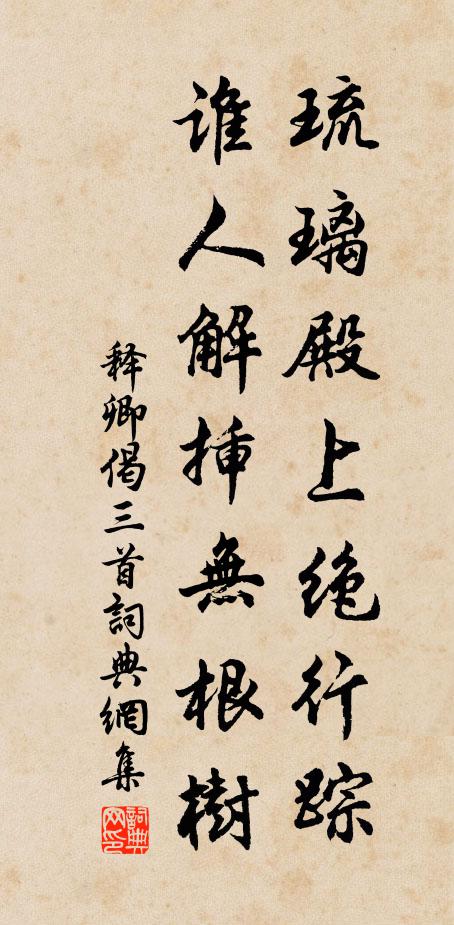 琉璃殿上绝行踪
谁人解挿無根樹
释卿偈三首詞典網集
詞典网印